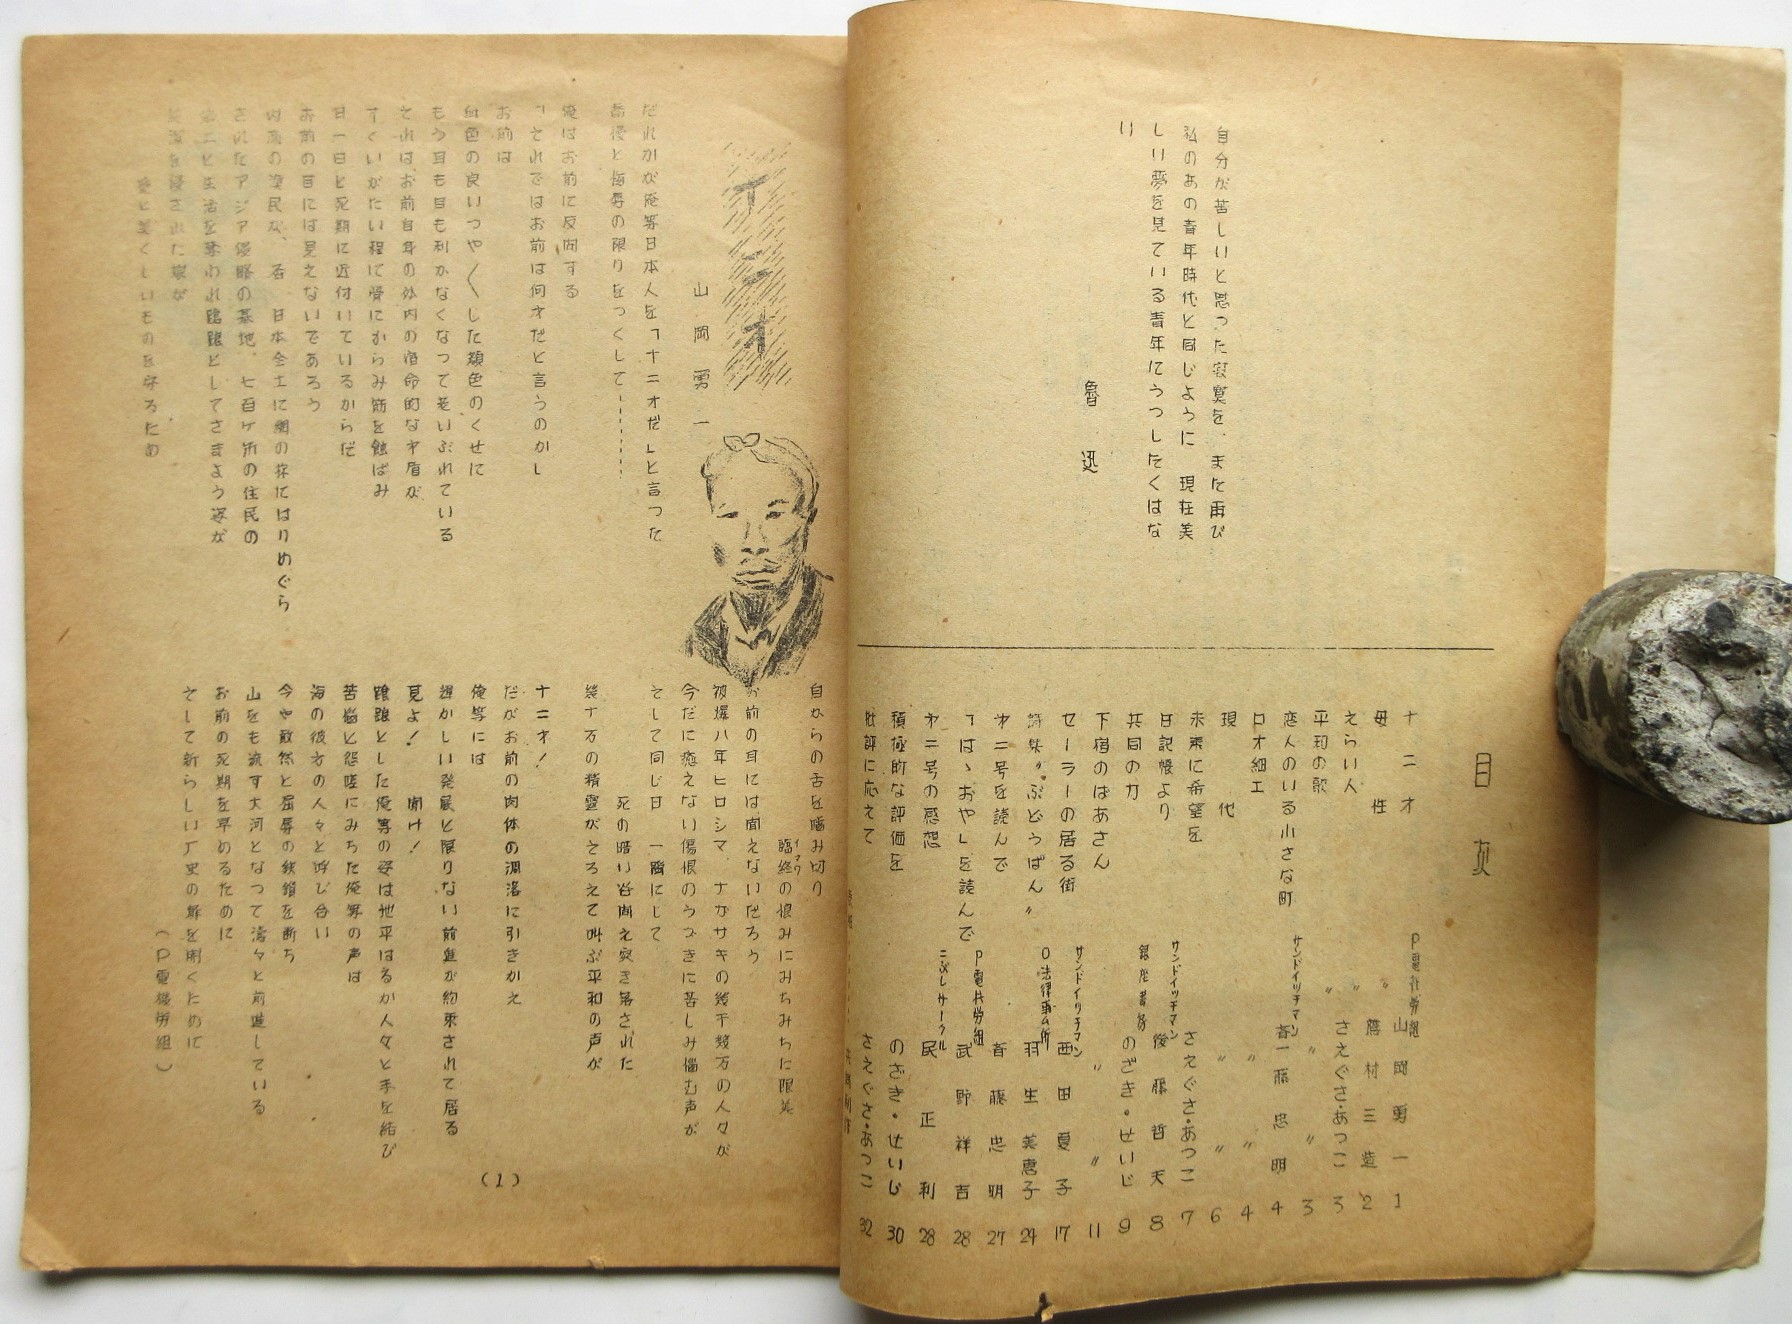 自分が苦しいと思った寂寞を、また再び
私のあの青年時代と同じように 現在美
しい夢を見ている青年にうつしたくはな
い
魯迅
目次
十二才 P電社労組 山岡勇一 1
母性 〃 藤村三造 2
えらい人 〃 さえぐさ・あつこ 3
平和の歌 〃 3
恋人のいる小さな町 サンドイツチマン 斉藤忠明 4
口才細工 〃 〃 4
現代 〃 〃 6
未来に希望を さえぐさ・あつこ 7
日記帳より サンドイツチマン 後藤哲夫 8
共同の力 のざき・せいじ 9
下宿のばあさん 〃 〃 11
セーラーの居る街 サンドイツチマン 西田夏子 17
詩集〝ぶどうぱん〟 O法律事ム所 羽生美恵子 24
才二号を読んで 斉藤忠明 27
「はゝおや」を読んで P電共労組 武野祥吉 28
才二号の感想 こぶしサークル 民正利 28
積極的な評価を のざき・せいじ 30
批評に応えて さえぐさ・あつこ 32
十二才
山岡勇一
だれかが俺等日本人を「十二才だ」と言つた
侮辱の限りをつくして………
俺はお前に反問する
「それではお前は何才だと言うのか」
お前は
血色の良いつや〱した顔色のくせに
もう耳も目も利かなくなつて老いぶれている
それはお前自身の体内の宿命的な矛盾が
すくいがたい程に骨にからみ筋を蝕ばみ
日一日と死期に近付いているからだ
お前の目には見えないであろう
の漁民が、否、日本全土に網の様にはりめぐら
されたアジア侵略の基地、七百ケ所の住民の
生活を奪われ踉踉としてさまよう姿が
された家が
愛と美くしいものを守るため
自からの舌を噛み切り
臨終の恨みにみちみちた眼
お前の耳には聞えないだろう
被爆八年ヒロシマ ナガサキの幾千数万の人々が
今だに癒えない傷恨のうづきに苦しみ悩む声が
そして同じ日 一瞬にして
死の暗い谷間え突き落された
幾十万の精霊がそろえて叫ぶ平和の声が
十二才!
だがお前の肉体の凋落に引きかえ
俺等には
輝かしい発展と限りない前進が約束されて居る
見よ! 聞け!
踉踉とした俺等の姿は地平はるか人々と手を結び
苦悩と怨嗟にみちた俺等の声は
海の彼方の人々と呼び合い
今や敢然と屈辱の鉄鎖を断ち
山をも流す大河となつて滔々と前進している
お前の死期を早めるために
そして新らしい厂史の扉を開くために
(P電機労組)
(1)